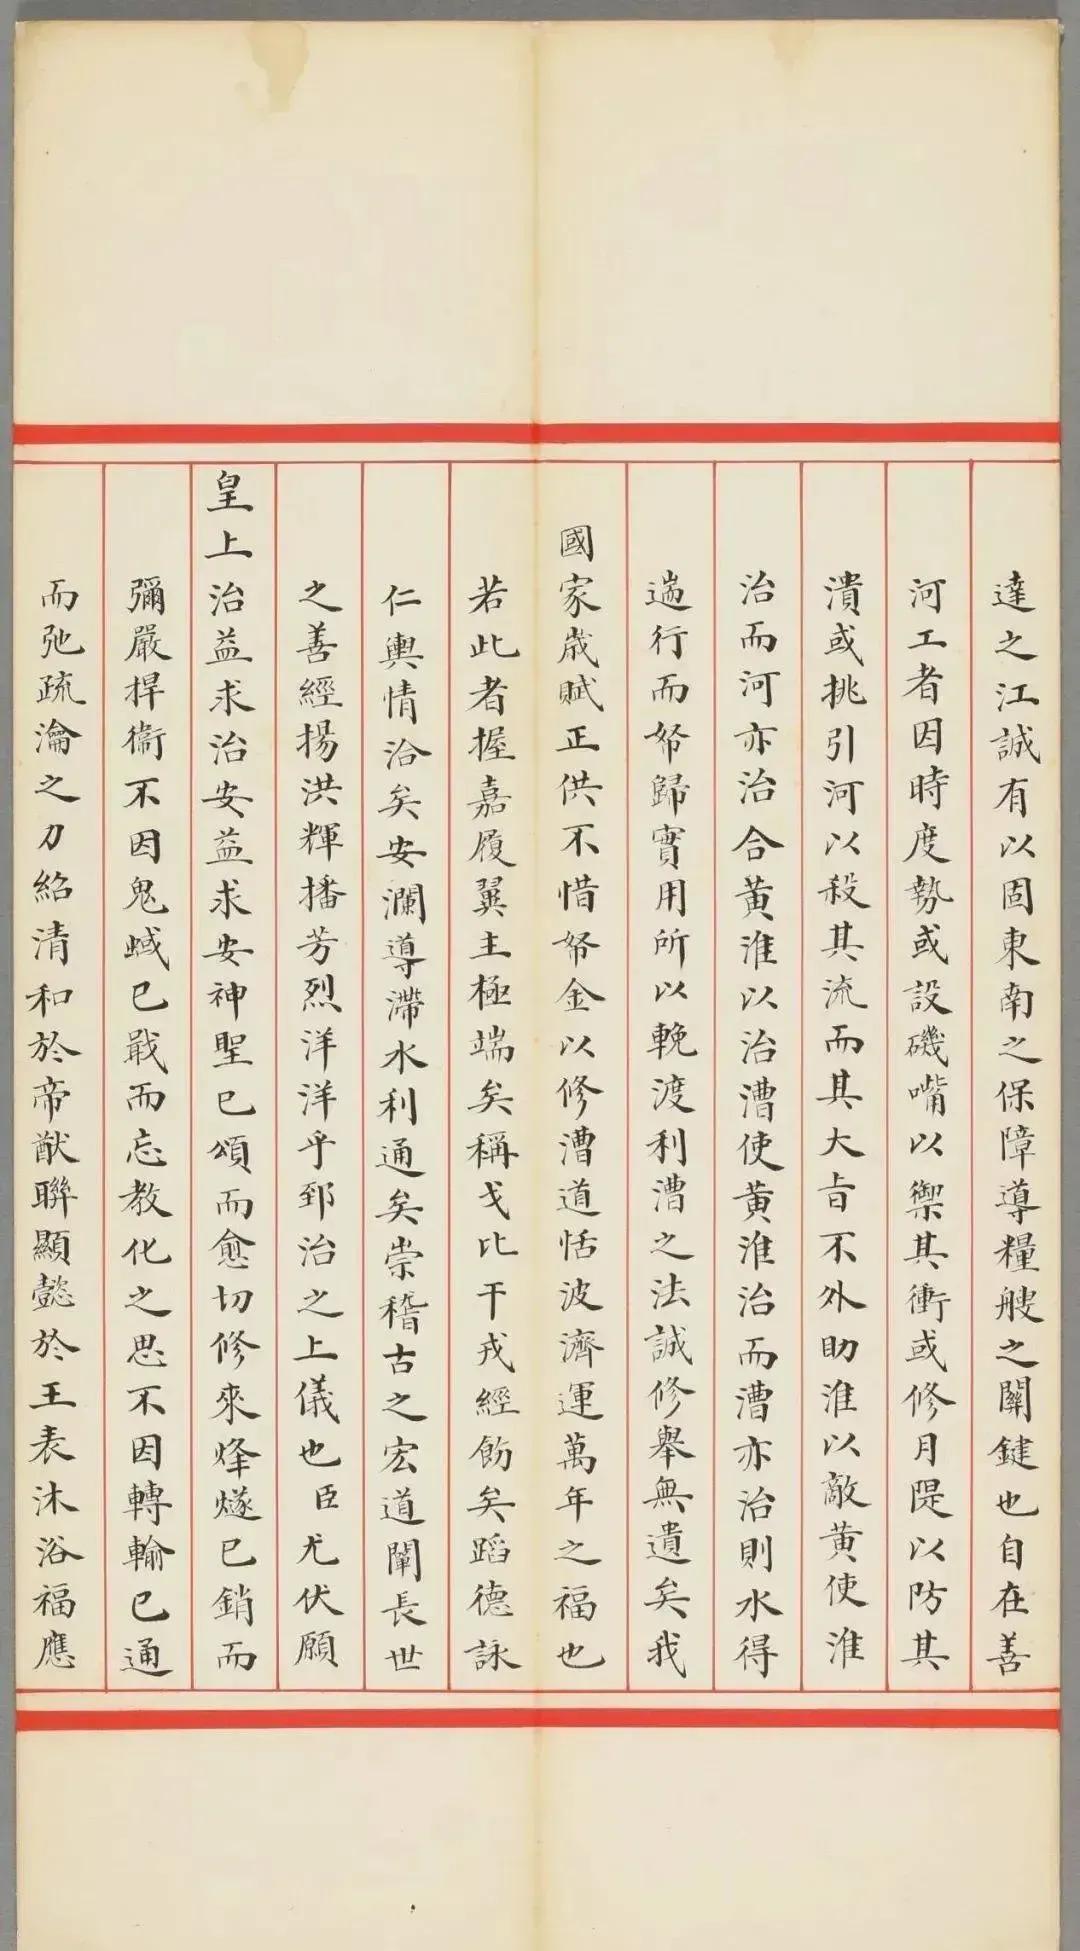 達之江誠有以固東南之保障導糧艘之關鍵也自在善
河工者因時度勢或設磯嘴以禦其衝或修月隄以防其
潰或挑引河以殺其流而其大旨不外助淮以敵黃使淮
治而河亦治合黃淮以治漕使黃淮治而漕亦治則水得
遄行而帑歸實用所以輓渡利漕之法誠修舉無遺矣我
國家歲賦正供不惜帑金以修漕道恬波濟運萬年之福也
若此者握嘉履翼主極端矣稱戈比干戎經飭矣蹈德詠
仁輿情洽矣安瀾導滯水利通矣崇稽古之宏道闡長世
之善經揚洪輝播芳烈洋洋乎郅治之上儀也臣尤伏願
皇上治益求治安益求安神聖已頌而愈切修來烽燧已銷而
彌嚴捍衞不因鬼蜮已戢而忘教化之思不因轉輸已通
而弛疏瀹之力紹清和於帝猷聯顯懿於王表沐浴福應